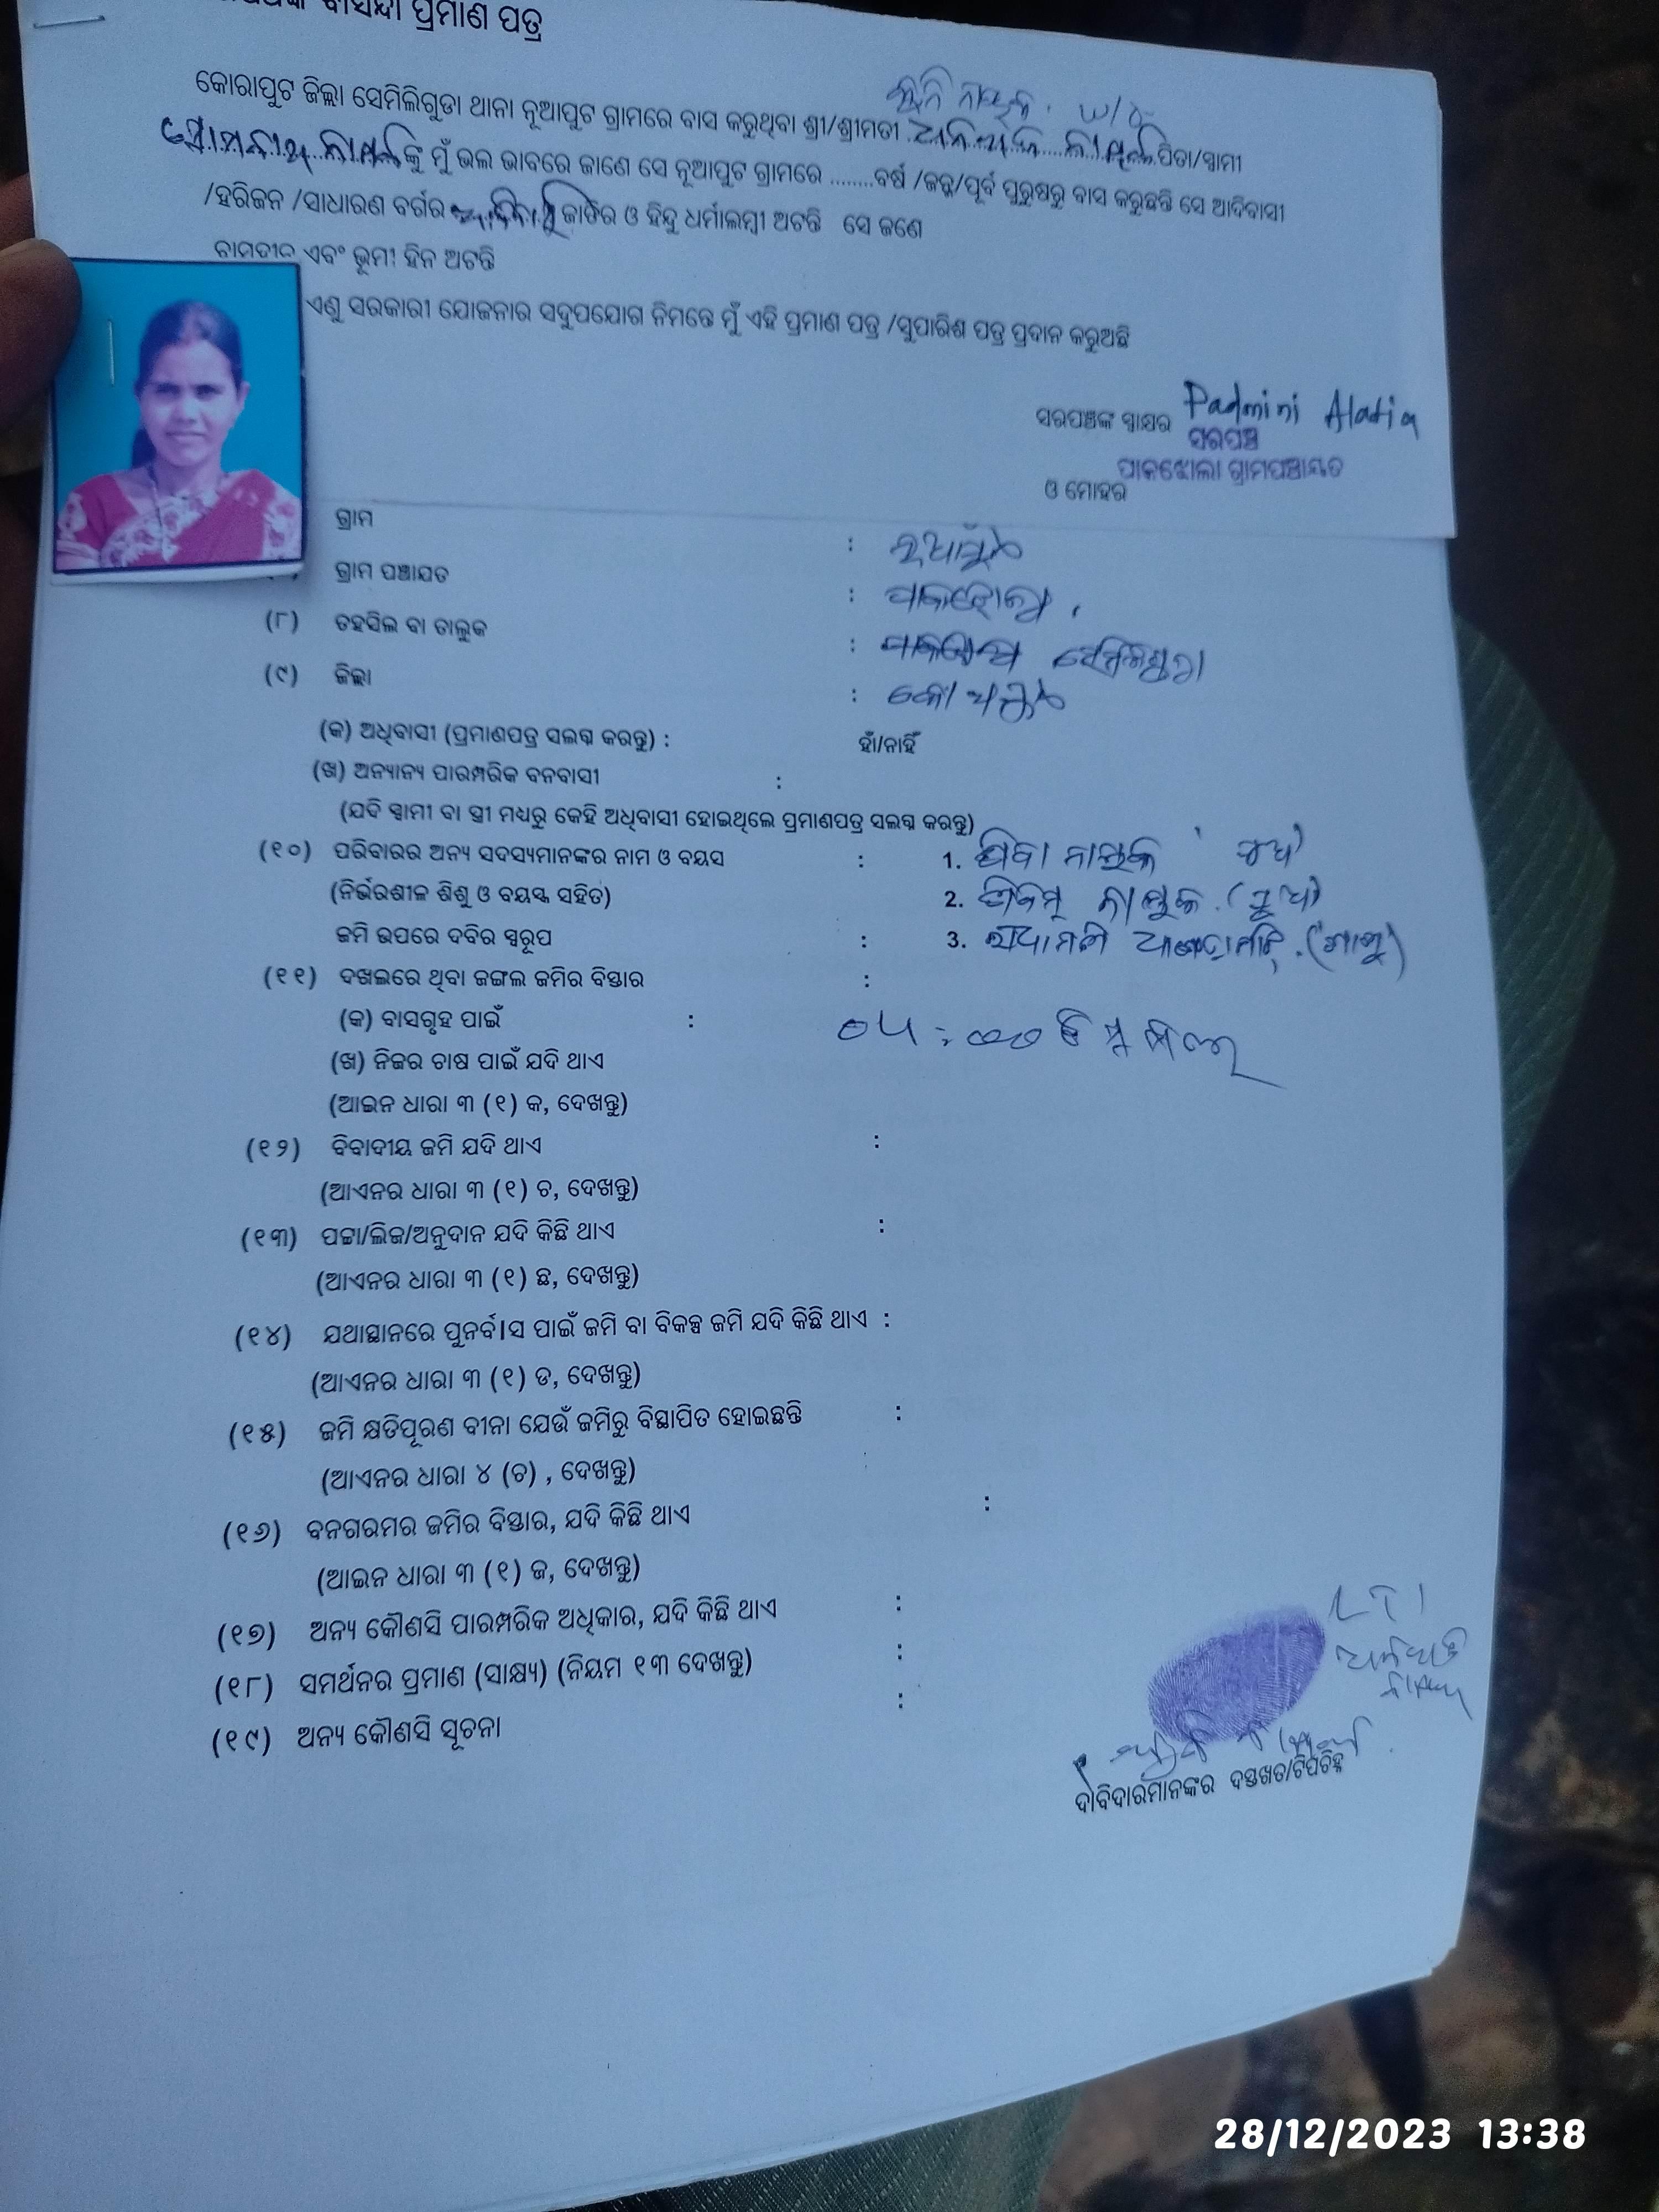 ବାସିନ୍ଦା ପ୍ରମାଣ ପତ୍ର
କୋରାପୁଟ ଜିଲ୍ଲା ସେମିଲିଗୁଡା ଥାନା ନୂଆପୁଟ ଗ୍ରାମରେ ବାସ କରୁଥିବା ଶ୍ରୀ/ଶ୍ରୀମତୀ ପିତା/ସ୍ୱାମୀ
ଙ୍କୁ ମୁଁ ଭଲ ଭାବରେ ଜାଣେ ସେ ନୂଆପୁଟ ଗ୍ରାମରେ ........ବର୍ଷ /ଜନ୍ମ/ପୂର୍ବ ପୁରୁଷରୁ ବାସ କରୁଛନ୍ତି ସେ ଆଦିବାସୀ
/ହରିଜନ /ସାଧାରଣ ବର୍ଗର ଜାତିର ଓ ହିନ୍ଦୁ ଧର୍ମାଲମ୍ବୀ ଅଟନ୍ତି ସେ ଜଣେ
ଏବଂ ଭୂମୀ ହିନ ଅଟନ୍ତି
ଏଣୁ ସରକାରୀ ଯୋଜନାର ସଦୁପଯୋଗ ନିମନ୍ତେ ମୁଁ ଏହି ପ୍ରମାଣ ପତ୍ର /ସୁପାରିଶ ପତ୍ର ପ୍ରଦାନ କରୁଅଛି
ସରପଞ୍ଚଙ୍କ ସ୍ୱାକ୍ଷର Padmini
ସରପଞ୍ଚ
ପାକଝୋଲା ଗ୍ରାମପଞ୍ଚାୟତ
ଓ ମୋହର
ଗ୍ରାମ : ନୂଆପୁଟ
ଗ୍ରାମ ପଞ୍ଚାଯତ : ପାକଝୋଲା
(୮) ତହସିଲ ବା ତାଲୁକ : ସେମିଳିଗୁଡା
(୯) ଜିଲ୍ଲା : କୋରାପୁଟ
(କ) ଅଧିବାସୀ (ପ୍ରମାଣପତ୍ର ସଲଗ୍ନ କରନ୍ତୁ) : ହଁା/ନାହିଁ
(ଖ) ଅନ୍ୟାନ୍ୟ ପାରମ୍ପରିକ ବନବାସୀ :
(ଯଦି ସ୍ୱାମୀ ବା ସ୍ତ୍ରୀ ମଧ୍ୟରୁ କେହି ଅଧିବାସୀ ହୋଇଥିଲେ ପ୍ରମାଣପତ୍ର ସଲଗ୍ନ କରନ୍ତୁ)
(୧୦) ପରିବାରର ଅନ୍ୟ ସଦସ୍ୟମାନଙ୍କର ନାମ ଓ ବୟସ : 1. ଶିବା ନାୟକ
(ନିର୍ଭରଶୀଳ ଶିଶୁ ଓ ବୟସ୍କ ସହିତ) 2. ନାୟକ (ପୁଅ)
ଜମି ଉପରେ ଦବିର ସ୍ୱରୂପ : 3. (ଶାଶୁ)
(୧୧) ଦଖଲରେ ଥିବା ଜଙ୍ଗଲ ଜମିର ବିସ୍ତାର :
(କ) ବାସଗୃହ ପାଇଁ :
(ଖ) ନିଜର ଚାଷ ପାଇଁ ଯଦି ଥାଏ
(ଆଇନ ଧାରା ୩ (୧) କ, ଦେଖନ୍ତୁ)
(୧୨) ବିବାଦୀୟ ଜମି ଯଦି ଥାଏ :
(ଆଏନର ଧାରା ୩ (୧) ଚ, ଦେଖନ୍ତୁ)
(୧୩) ପଟ୍ଟା/ଲିଜ/ଅନୁଦାନ ଯଦି କିଛି ଥାଏ :
(ଆଏନର ଧାରା ୩ (୧) ଛ, ଦେଖନ୍ତୁ)
(୧୪) ଯଥାସ୍ଥାନରେ ପୁନର୍ବାସ ପାଇଁ ଜମି ବା ବିକଳ୍ପ ଜମି ଯଦି କିଛି ଥାଏ :
(ଆଏନର ଧାରା ୩ (୧) ଡ, ଦେଖନ୍ତୁ)
(୧୫) ଜମି କ୍ଷତିପୂରଣ ବୀନା ଯେଉଁ ଜମିରୁ ବିସ୍ଥାପିତ ହୋଇଛନ୍ତି :
(ଆଏନର ଧାରା ୪ (ଚ) , ଦେଖନ୍ତୁ)
(୧୬) ବନଗରମର ଜମିର ବିସ୍ତାର, ଯଦି କିଛି ଥାଏ :
(ଆଇନ ଧାରା ୩ (୧) ଜ, ଦେଖନ୍ତୁ)
(୧୭) ଅନ୍ୟ କୌଣସି ପାରମ୍ପରିକ ଅଧିକାର, ଯଦି କିଛି ଥାଏ :
(୧୮) ସମର୍ଥନର ପ୍ରମାଣ (ସାକ୍ଷ୍ୟ) (ନିୟମ ୧୩ ଦେଖନ୍ତୁ) :
(୧୯) ଅନ୍ୟ କୌଣସି ସୂଚନା :
ଦାବିଦାରମାନଙ୍କର ଦସ୍ତଖତ/ଟିପଚିହ୍ନ
28/12/2023 13:38